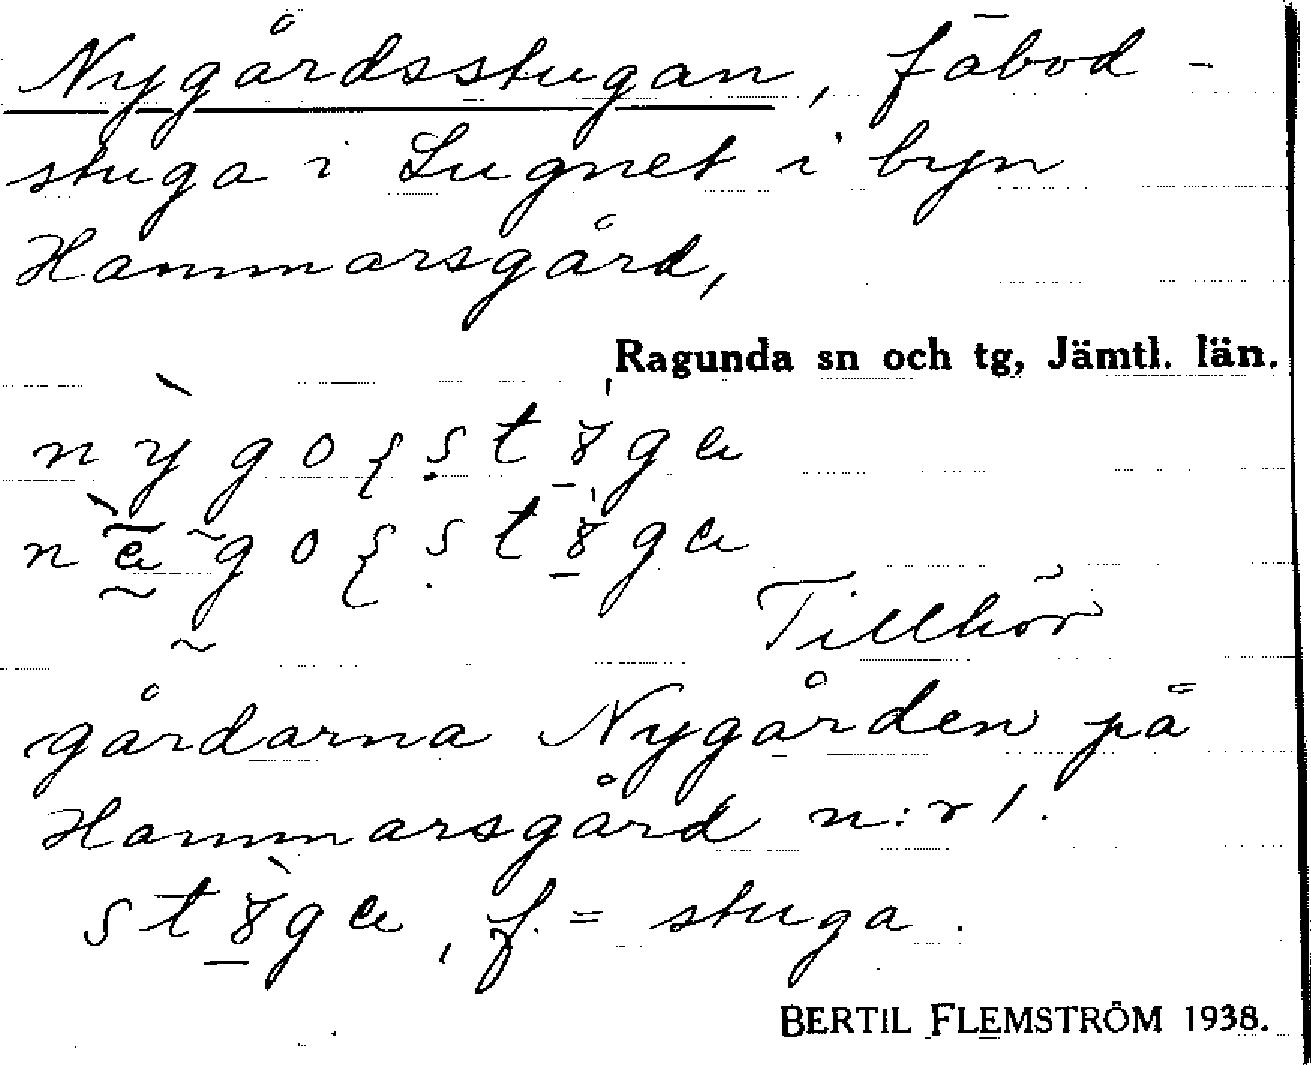 Nygårdsstugan, fäbod-
stuga i Lugnet i byn
Hammarsgård,
Ragunda sn och tg, Jämtl. län.
Tillhör
gårdarna Nygården på
Hammarsgård n:r 1.
f. = stuga.
BERTIL FLEMSTRÖM 1938.